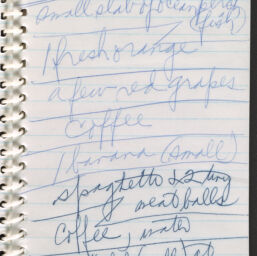 small slab of ocean perch
(fish)
1 fresh orange
a few red grapes
coffee
1 banana (small)
spaghetti & 2 tiny
meatballs
Coffee, water